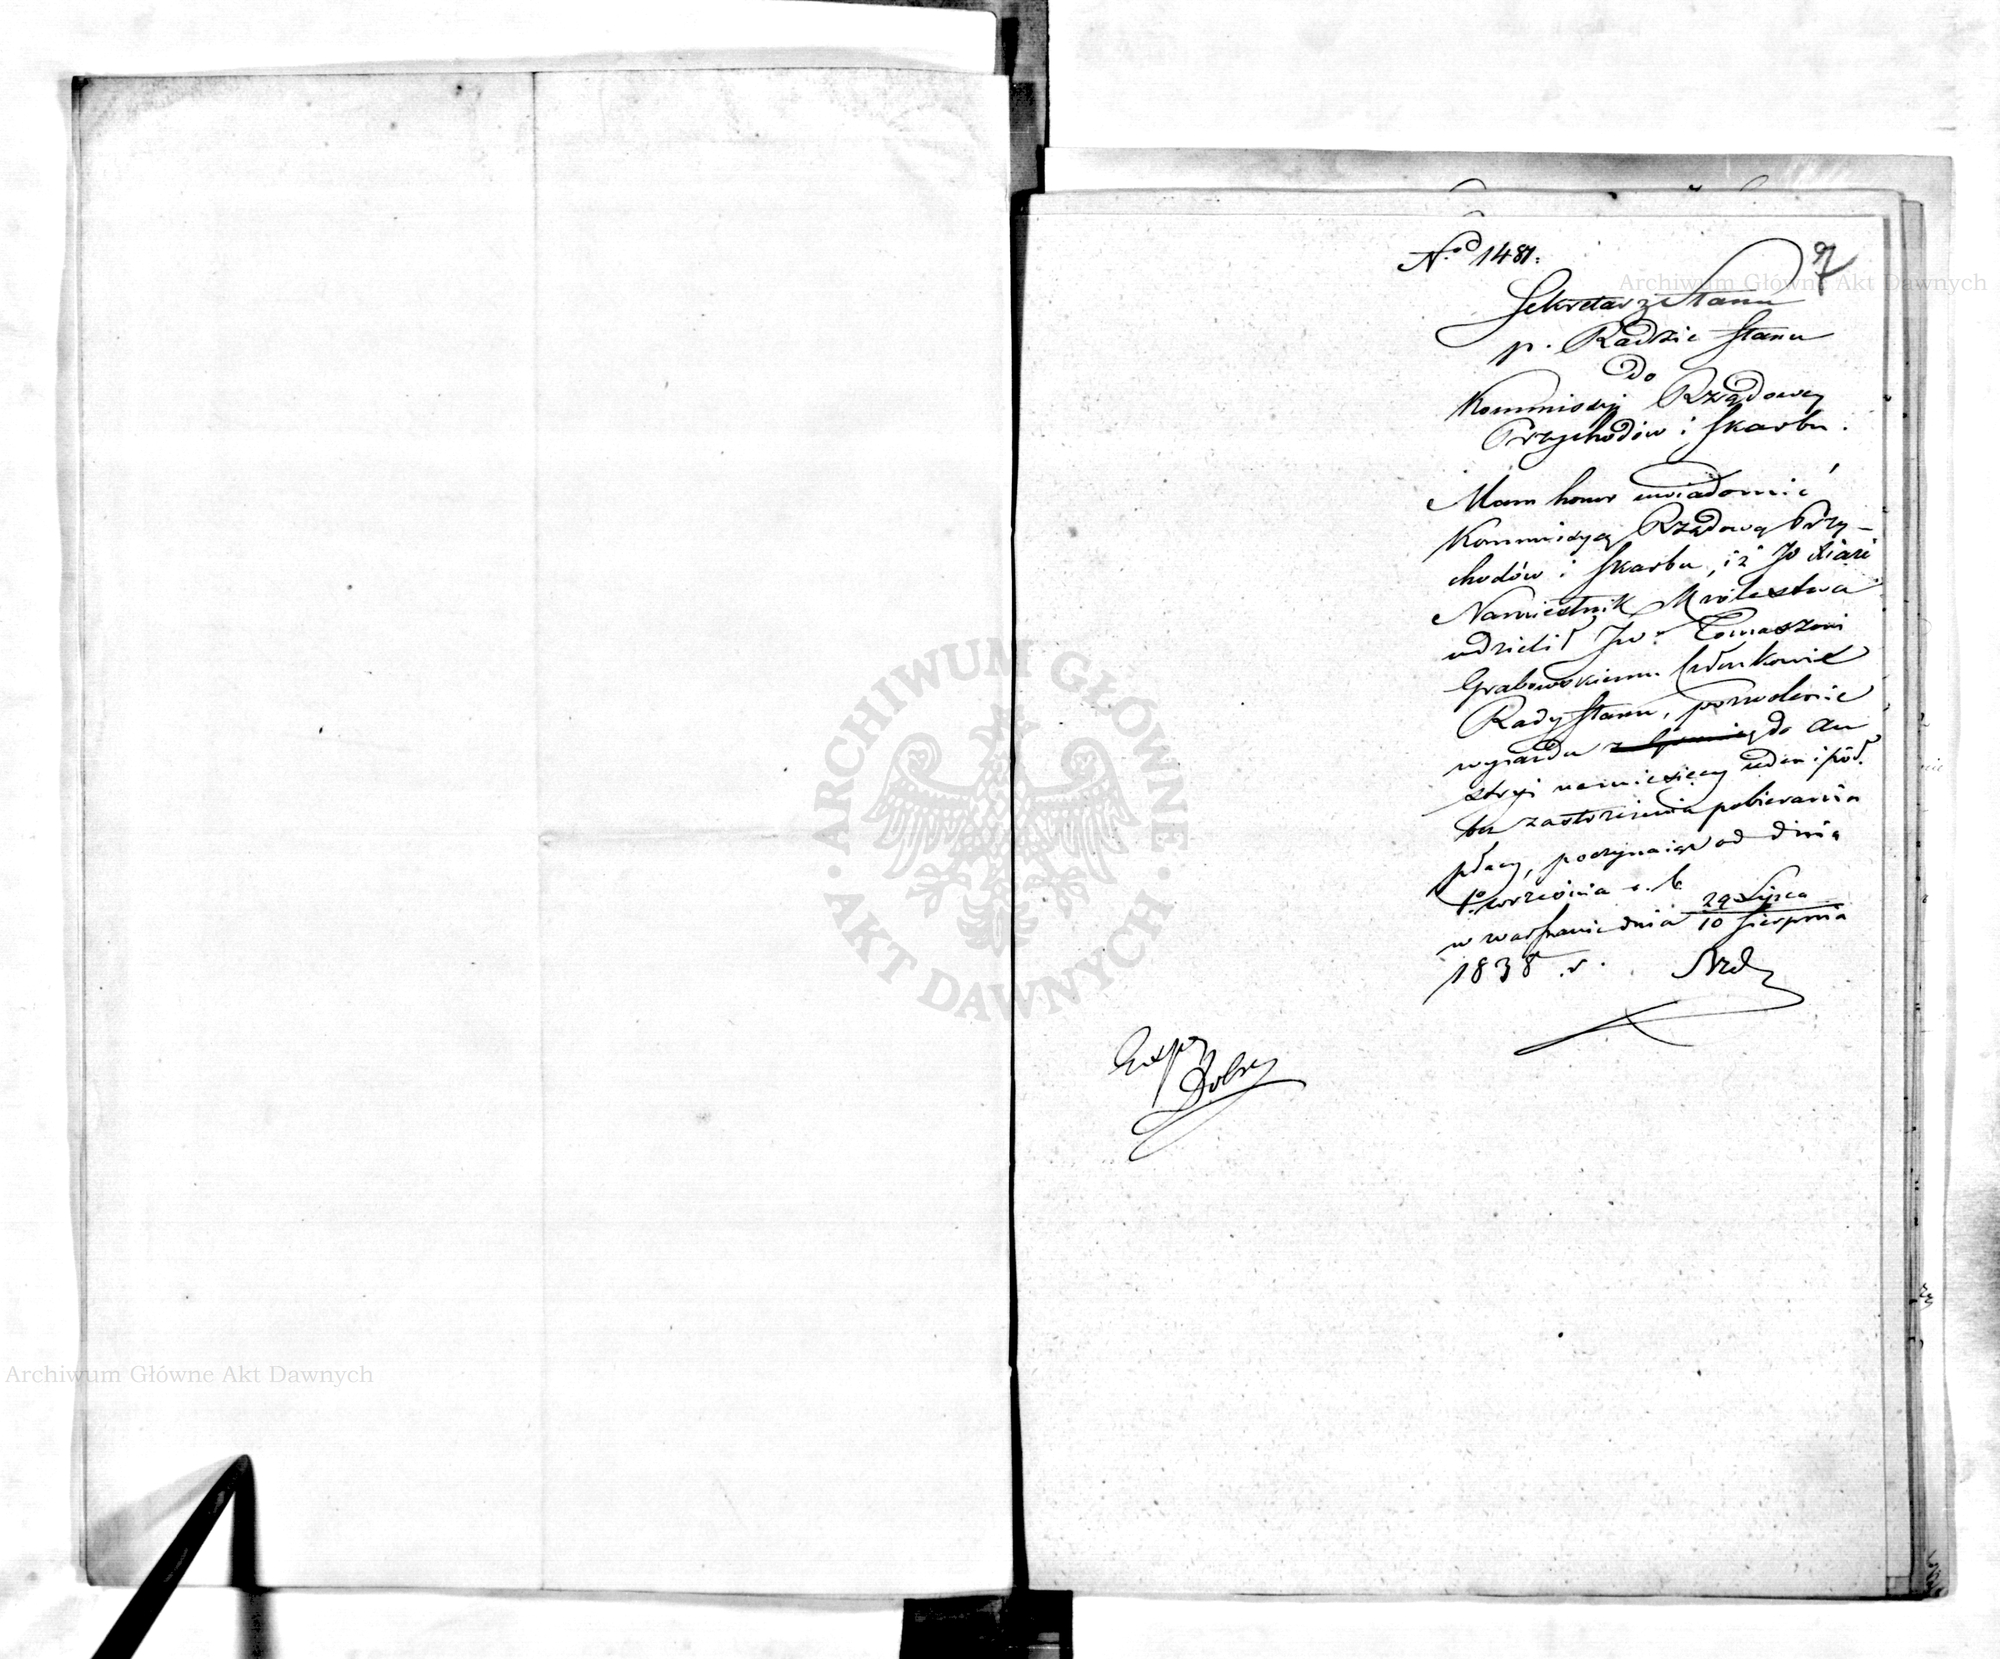 No 1481.
Sekretarz Stanu
p. Radzie Stanu
do
Kommissyi Rządowey
Przychodów i Skarbu.
Mam honor uwiadomić
Kommissyą Rządową Przy-
chodów i Skarbu, iż JO Xiąże
Namiestnik Królestwa
udzielił JW. Tomaszowi
Grabowskiemu Członkowi
Rady Stanu, pozwolenie
wyiazdu do Au
stryi na miesięcy ieden i pół
bez zastrzeżenia pobierania
płacy, poczynaiąc od dnia
1o września r. b.
w Warszawie dnia 29 Lipca
10 Sierpnia
1838 r.
Exp
Archiwum Główne Akt Dawnych
Archiwum Główne Akt Dawnych
ARCHIWUM GŁÓWNE
AKT DAWNYCH